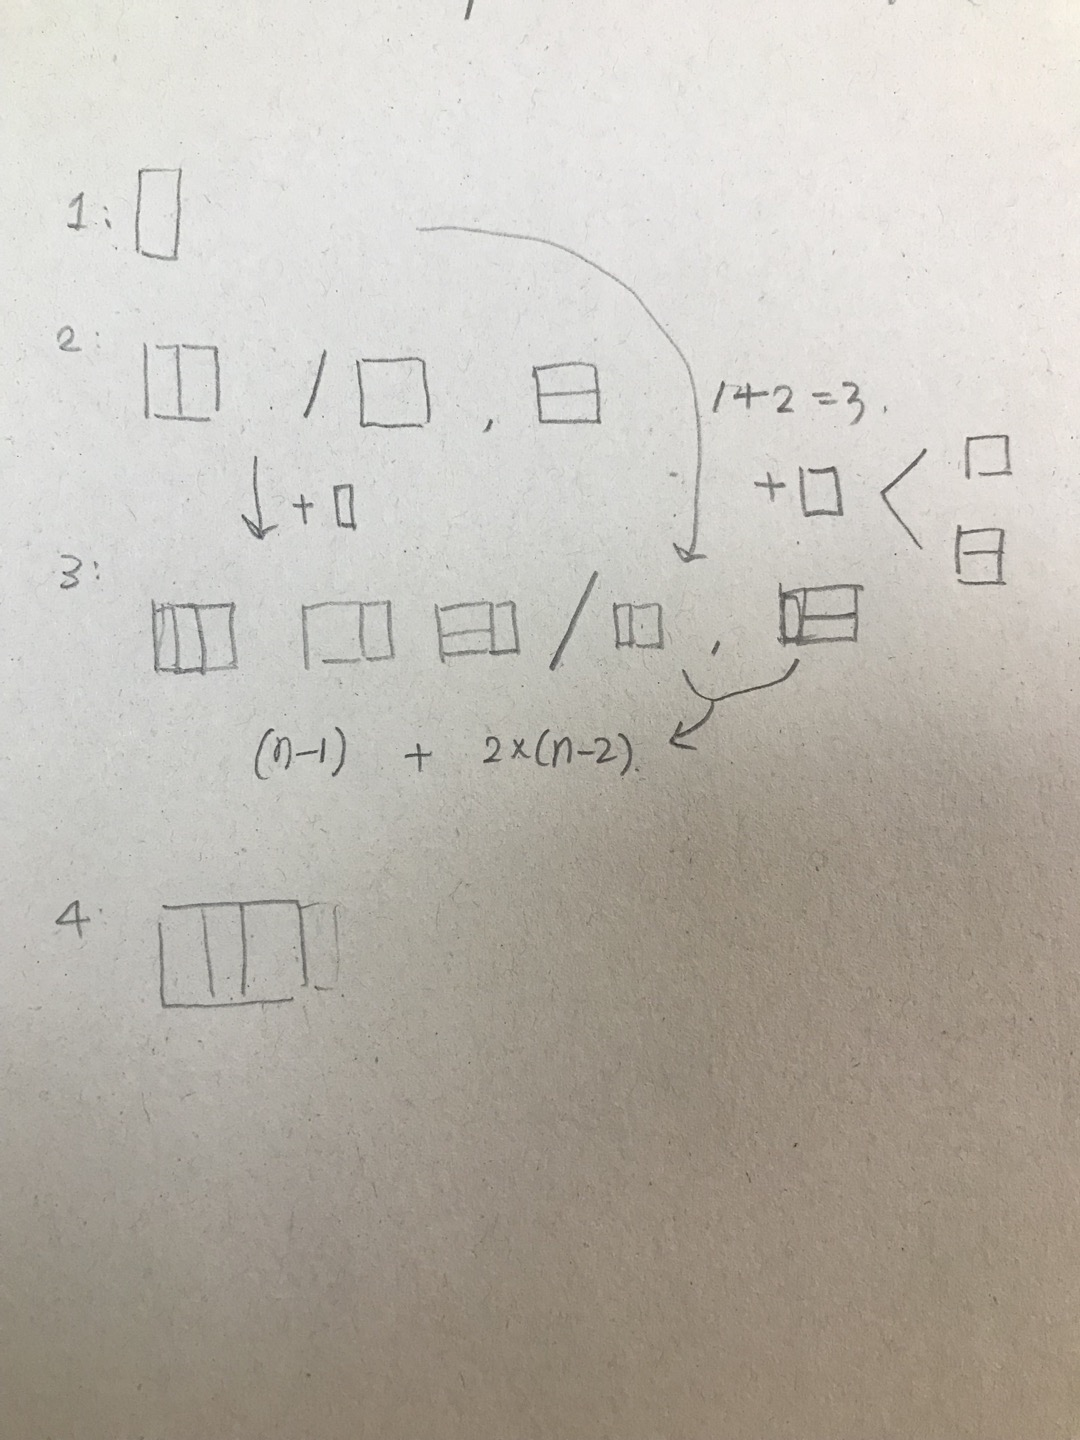 1:
2: / ,
1+2=3.
+ <
+
3: / ,
(n-1) + 2×(n-2).
4: